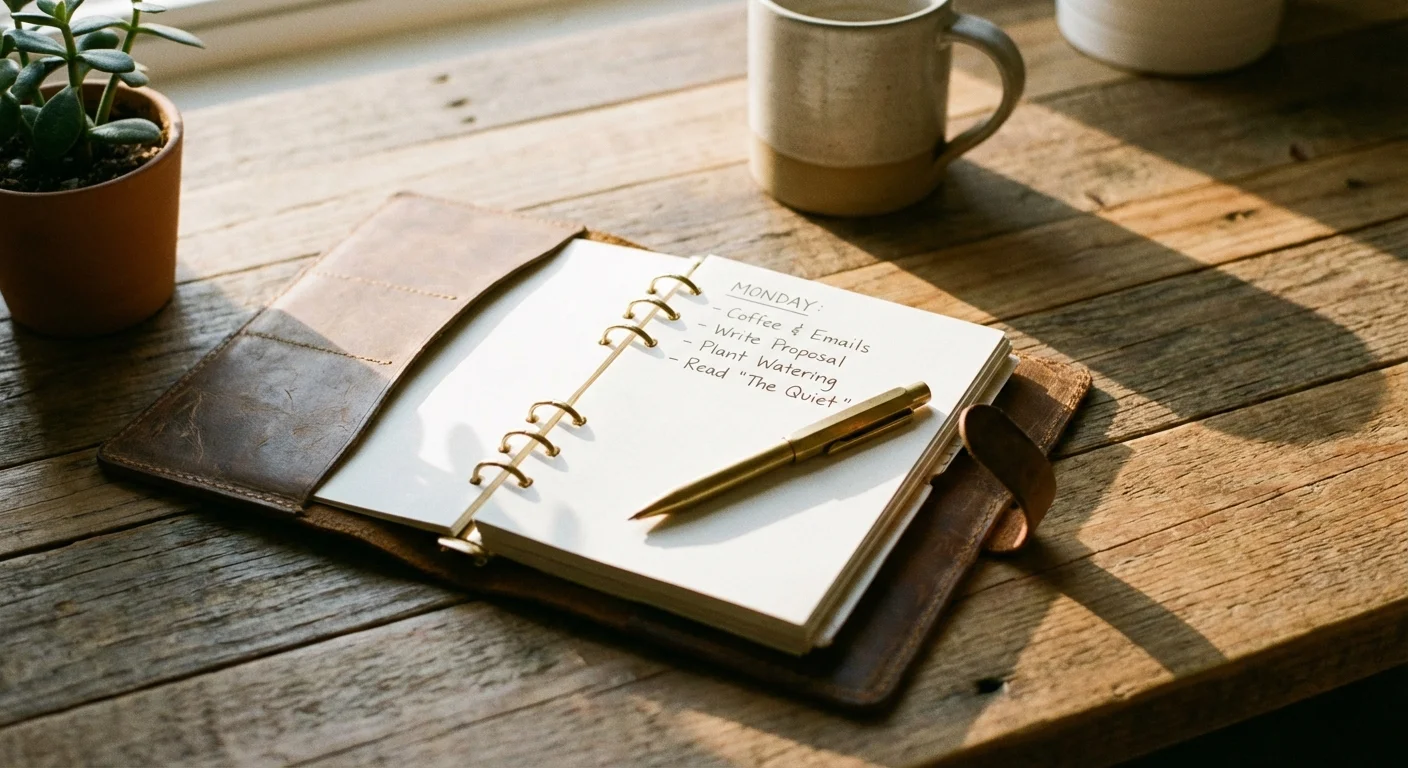 MONDAY:
- Coffee & Emails
- Write Proposal
- Plant Watering
- Read "The Quiet"